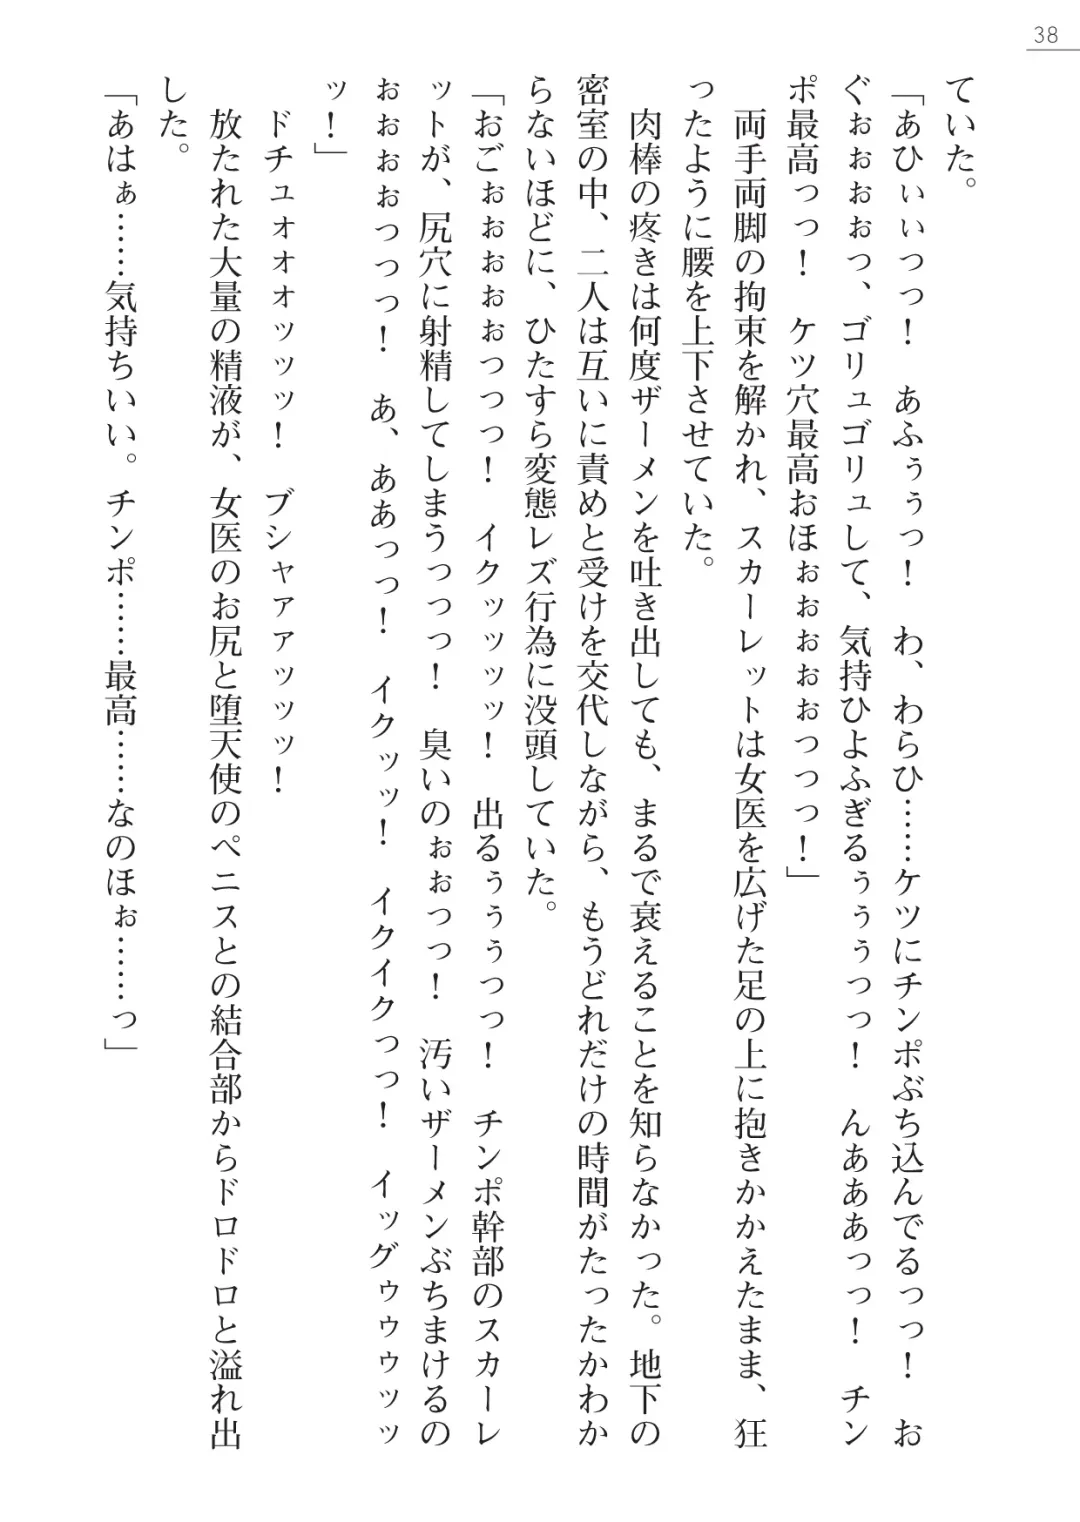 38
ていた。
「あひぃぃっっ！　あふぅぅっ！　わ、わらひ……ケツにチンポぶち込んでるっっ！　お
ぐぉぉぉぉっ、ゴリュゴリュして、気持ひよふぎるぅぅぅっっ！　んあああっっ！　チン
ポ最高っっ！　ケツ穴最高おほぉぉぉぉぉっっっ！」
　両手両脚の拘束を解かれ、スカーレットは女医を広げた足の上に抱きかかえたまま、狂
ったように腰を上下させていた。
　肉棒の疼きは何度ザーメンを吐き出しても、まるで衰えることを知らなかった。地下の
密室の中、二人は互いに責めと受けを交代しながら、もうどれだけの時間がたったかわか
らないほどに、ひたすら変態レズ行為に没頭していた。
「おごぉぉぉぉぉっっっ！　イクッッッッ！　出るぅぅぅっっ！　チンポ幹部のスカーレ
ットが、尻穴に射精してしまうっっっ！　臭いのぉぉっっ！　汚いザーメンぶちまけるの
ぉぉぉぉっっっ！　あ、ああっっ！　イクッッ！　イクイクっっ！　イッグゥゥゥッッ
ッ！」
　ドチュォォォッッッ！　ブシャァァッッッ！
　放たれた大量の精液が、女医のお尻と堕天使のペニスとの結合部からドロドロと溢れ出
した。
「あはぁ……気持ちいい。チンポ……最高……なのほぉ……っ」